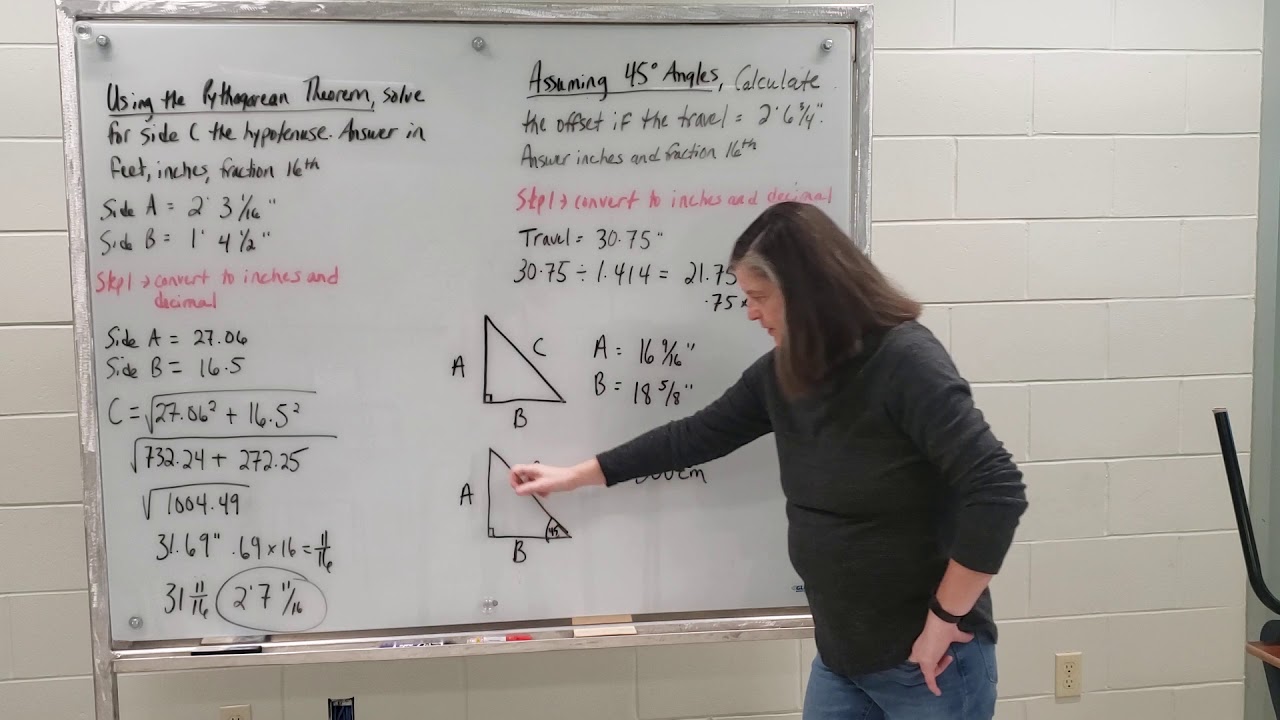 Using the Pythagorean Theorem, solve
for side C the hypotenuse. Answer in
feet, inches, fraction 16th
Side A = 2' 3 1/16"
Side B = 1' 4 1/2"
Step 1 → convert to inches and
decimal
Side A = 27.06
Side B = 16.5
C = √27.06² + 16.5²
√732.24 + 272.25
√1004.49
31.69" .69 × 16 = 11/16
31 11/16 2' 7 11/16
Assuming 45° Angles, Calculate
the offset if the travel = 2' 6 3/4".
Answer inches and fraction 16th
Step 1 → convert to inches and decimal
Travel = 30.75"
30.75 ÷ 1.414 = 21.75
.75 ×
A
C
B
A = 16 9/16"
B = 18 5/8"
A
45
B